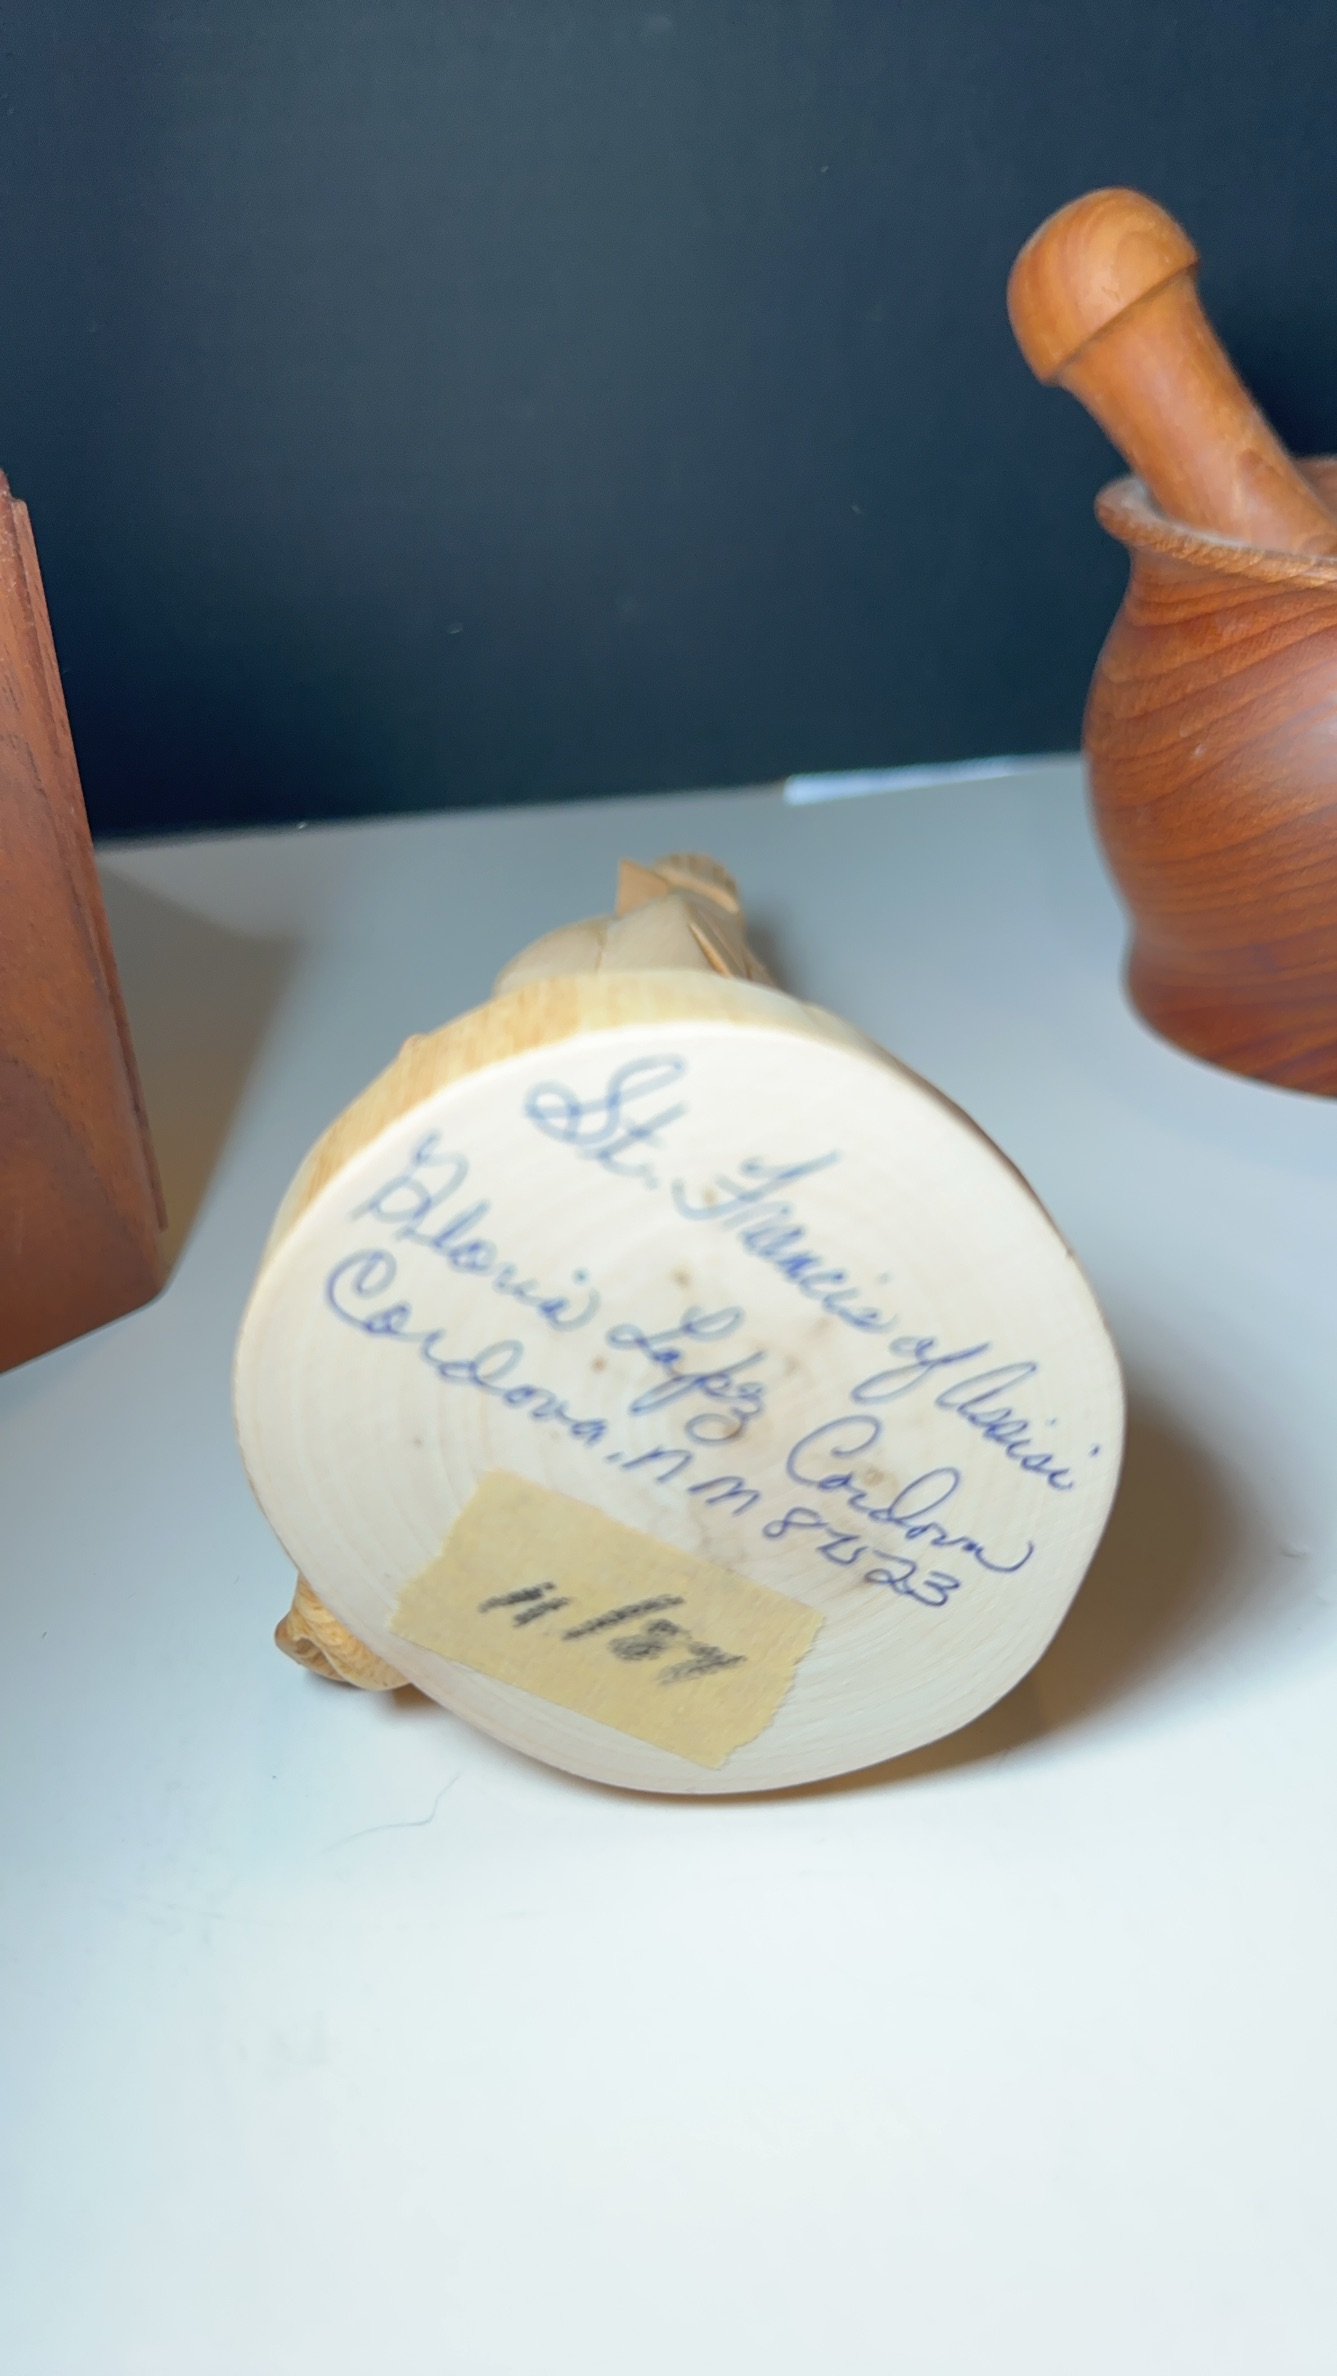 St. Francis of Assisi
Gloria Lopez Cordova
Cordova, NM 87523
11/87